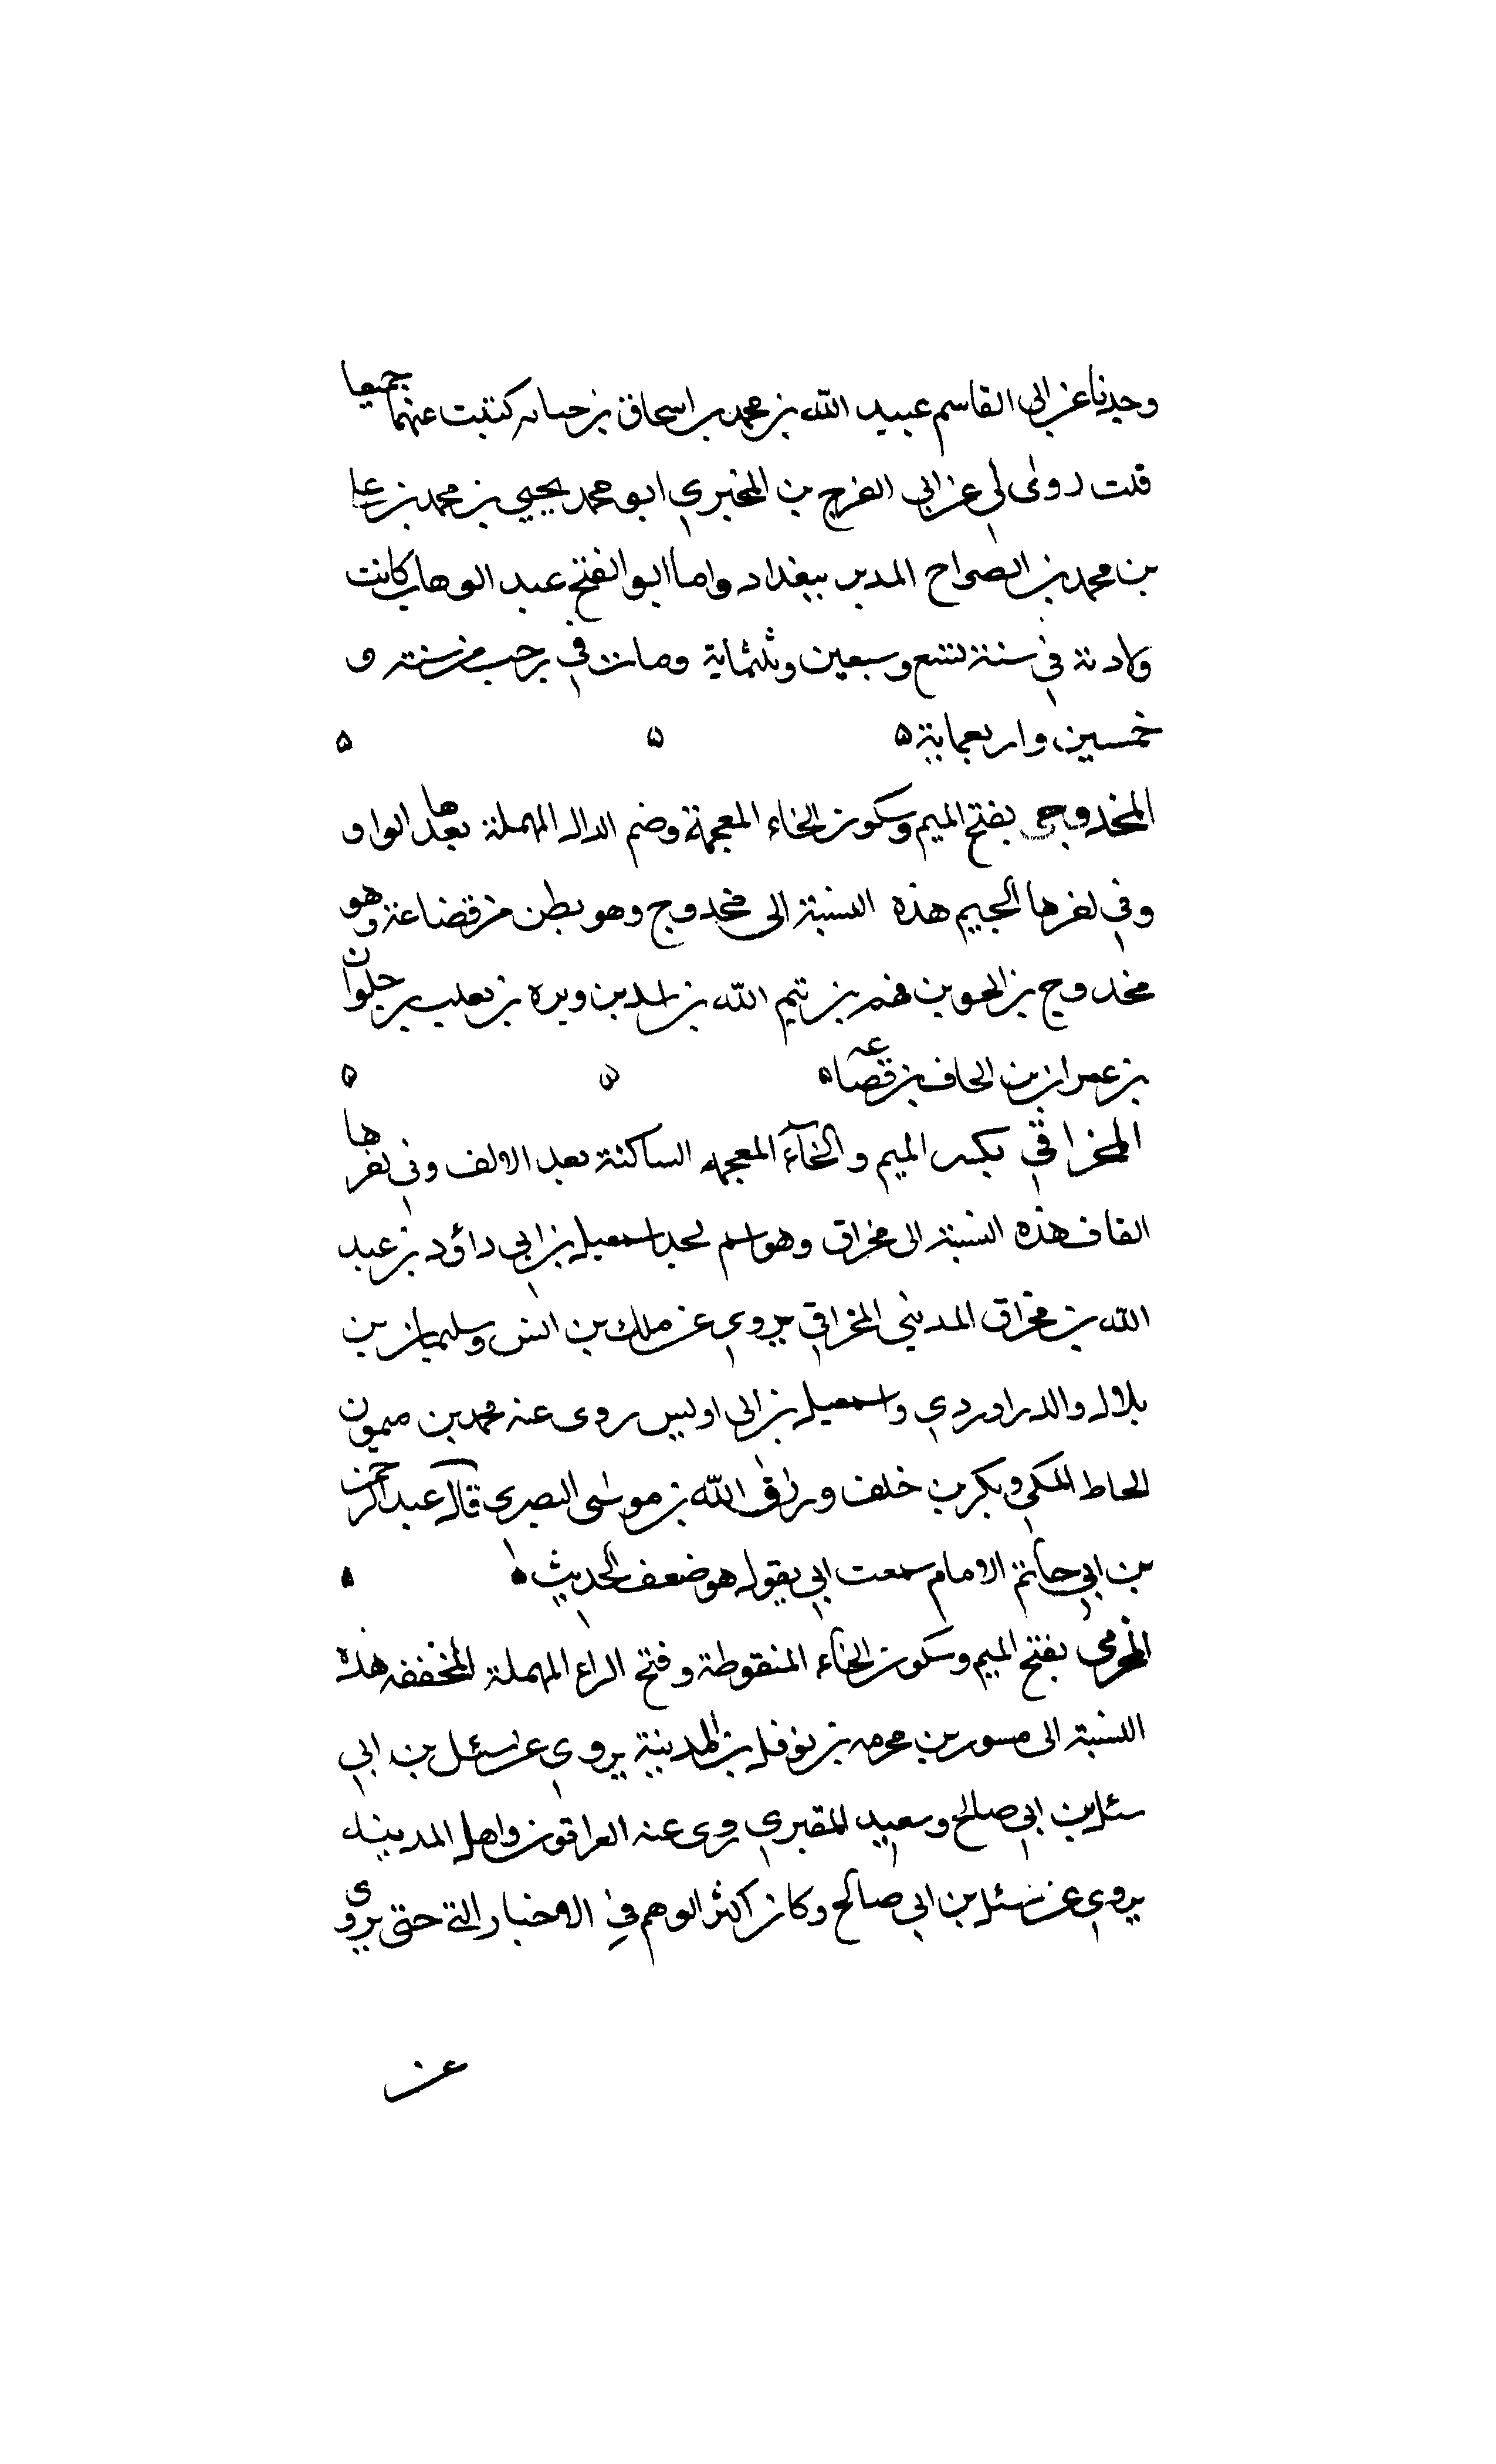 وحدثنا عن ابى القاسم عبيد الله بن محمد بن اسحاق بن حبابه كتبت عنهما جميعا
قلت روى لى عن ابى الفرج بن المخبزي ابو محمد يحيى بن محمد بن على
بن محمد بن الصراح المدبر ببغداد واما ابو الفتح عبد الوهاب كانت
ولادته في سنة تسع وسبعين وثلثماية ومات في رجب من سنة و
خمسين واربعماية ه ه ه
المخدوجى بفتح الميم وسكون الخاء المعجمة وضم الدال المهملة بعدها الواو
وفي اخرها الجيم هذه النسبة الى مخدوج وهو بطن من قضاعة وهو
مخدوج بن الحوين فهم بن تيم الله بن اسد بن وبره بن تعلب بن حلوان
بن عمران بن الحاف بن قضاعه ه ه ه
المخراقي بكسر الميم والخآء المعجمه الساكنة بعد الالف وفي اخرها
القاف هذه النسبة الى مخراق وهو اسم لجد اسمعيل بن ابى داؤد بن عبد
الله بن مخراق المديني المخراقي يروي عن ملك بن انس وسليمان بن
بلال والدراوردي واسمعيل بن ابى اويس روى عنه محمد بن ميمون
الحاط المكي وبكر بن خلف ورزق الله بن موسى البصرى قال عبد الرحمن
بن ابي حاتم الامام سمعت ابي يقول هو ضعف الحديث ه ه
المخرمي بفتح الميم وسكون الخاء المنقوطة وفتح الراء المهملة المخففه هذه
النسبة الى مسور بن مخرمه بن نوفل بن المدينة يروي عن سهل بن ابي
سهل بن ابي صالح وسعيد المقبري روى عنه العراقون واهل المدينه
يروي عن سهل بن ابي صالح وكان اكثر الوهم في الاخبار التى حتى يروى
عن